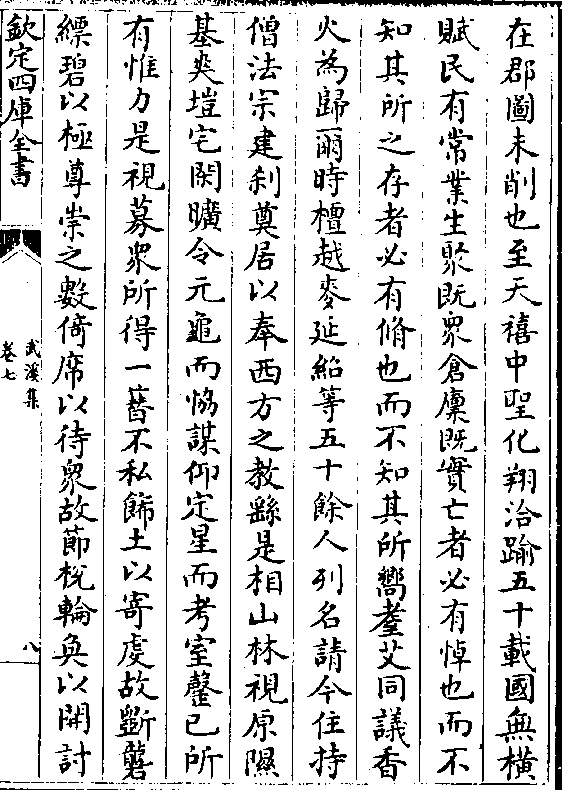 在郡圖未削也至天禧中聖化翔洽踰五十載國無橫
賦民有常業生聚既衆倉廩既實亡者必有悼也而不
知其所之存者必有脩也而不知其所嚮耋艾同議香
火為歸爾時檀越麥延紹等五十餘人列名請今住持
僧法宗建刹奠居以奉西方之教繇是相山林視原隰
基爽塏宅閑曠令元龜而恊謀仰定星而考室罄已所
有惟力是視募衆所得一蓄不私飾土以寄虔故斲礱
縹碧以極尊崇之數倚席以待衆故節梲輪奐以開討
欽定四庫全書
武溪集
卷七
八